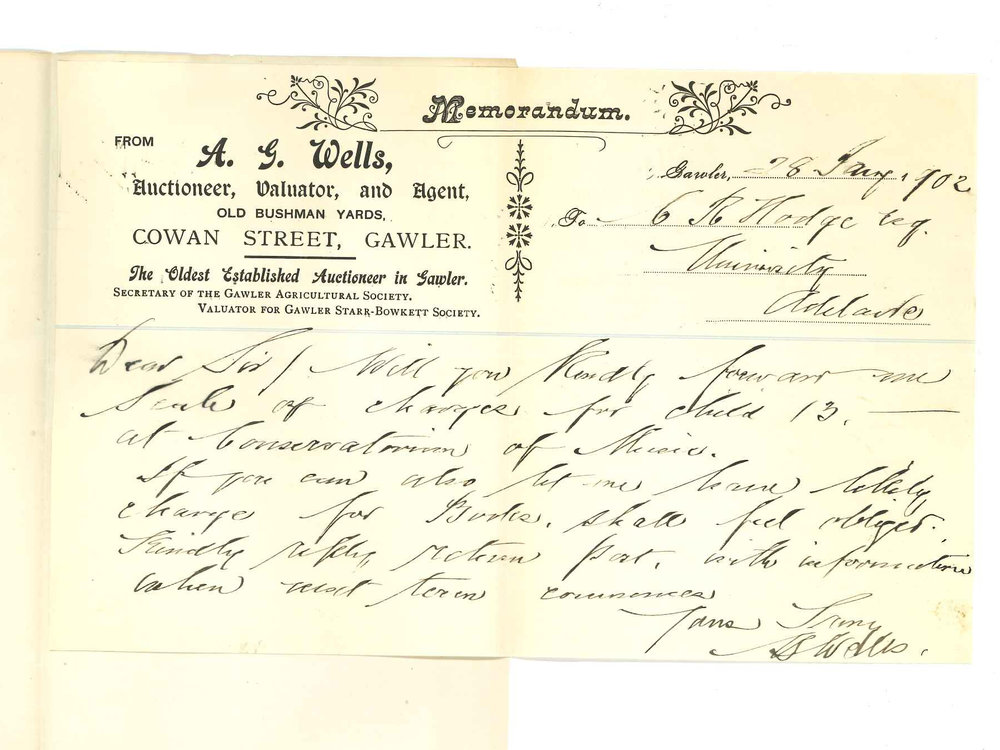 Memorandum.
FROM
A. G. Wells,
Auctioneer, Valuator, and Agent,
OLD BUSHMAN YARDS,
COWAN STREET, GAWLER.
The Oldest Established Auctioneer in Gawler.
SECRETARY OF THE GAWLER AGRICULTURAL SOCIETY.
VALUATOR FOR GAWLER STARR-BOWKETT SOCIETY.
Gawler, 28 Jany 1902
To C R Hodge Esq.
University
Adelaide
Dear Sir / Will you Kindly forward me
Scale of charges for child 13. —
at Conservatorium of Music.
If you can also let me have likely
charge for Books, shall feel obliged.
Kindly reply return post, with information
when next term commences
Yours Truly
A G Wells.